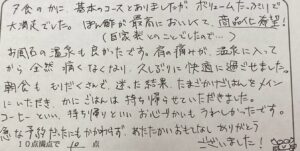 夕食のかに、基本のコースとありましたが、ボリュームたっぷりで
大満足でした。ぽん酢が最高においしくて、商品化希望!
(自家製とのことでしたので…)
お風呂の温泉も良かったです。肩の痛みが、温泉に入って
から全然痛くなくなり、久しぶりに快適に過ごせました。
朝食もりだくさんで、迷った結果、たまごかけごはんをメイン
にいただき、かにごはんは持ち帰らせていただきました。
コーヒーといい、持ち帰りといい、お心づかいもうれしかったです。
急な予約だったにもかかわらず、あたたかいおもてなしありがとう
ございました!
10点満点で 10 点